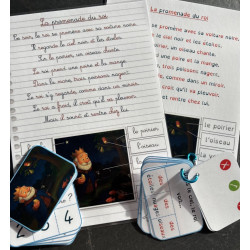 La promenade du roi
Ce soir, le roi se promène avec sa voiture noire.
Il regarde le ciel noir et les étoiles.
Sur le poirier, un oiseau chante.
Le roi prend une poire et la mange.
Dans la mare, trois poissons nagent.
Le roi s'y regarde, comme dans un miroir.
Le roi a froid, il croit qu'il va pleuvoir.
Alors il sourit et rentre chez lui.
le poirier
l'oiseau
La promenade du roi
promène avec sa voiture noire,
le ciel noir et les étoiles.
un oiseau chante.
une poire et la mange.
trois poissons nagent.
comme dans un miroir.
il croit qu'il va pleuvoir.
rentre chez lui.
le poirier
l'oiseau
4